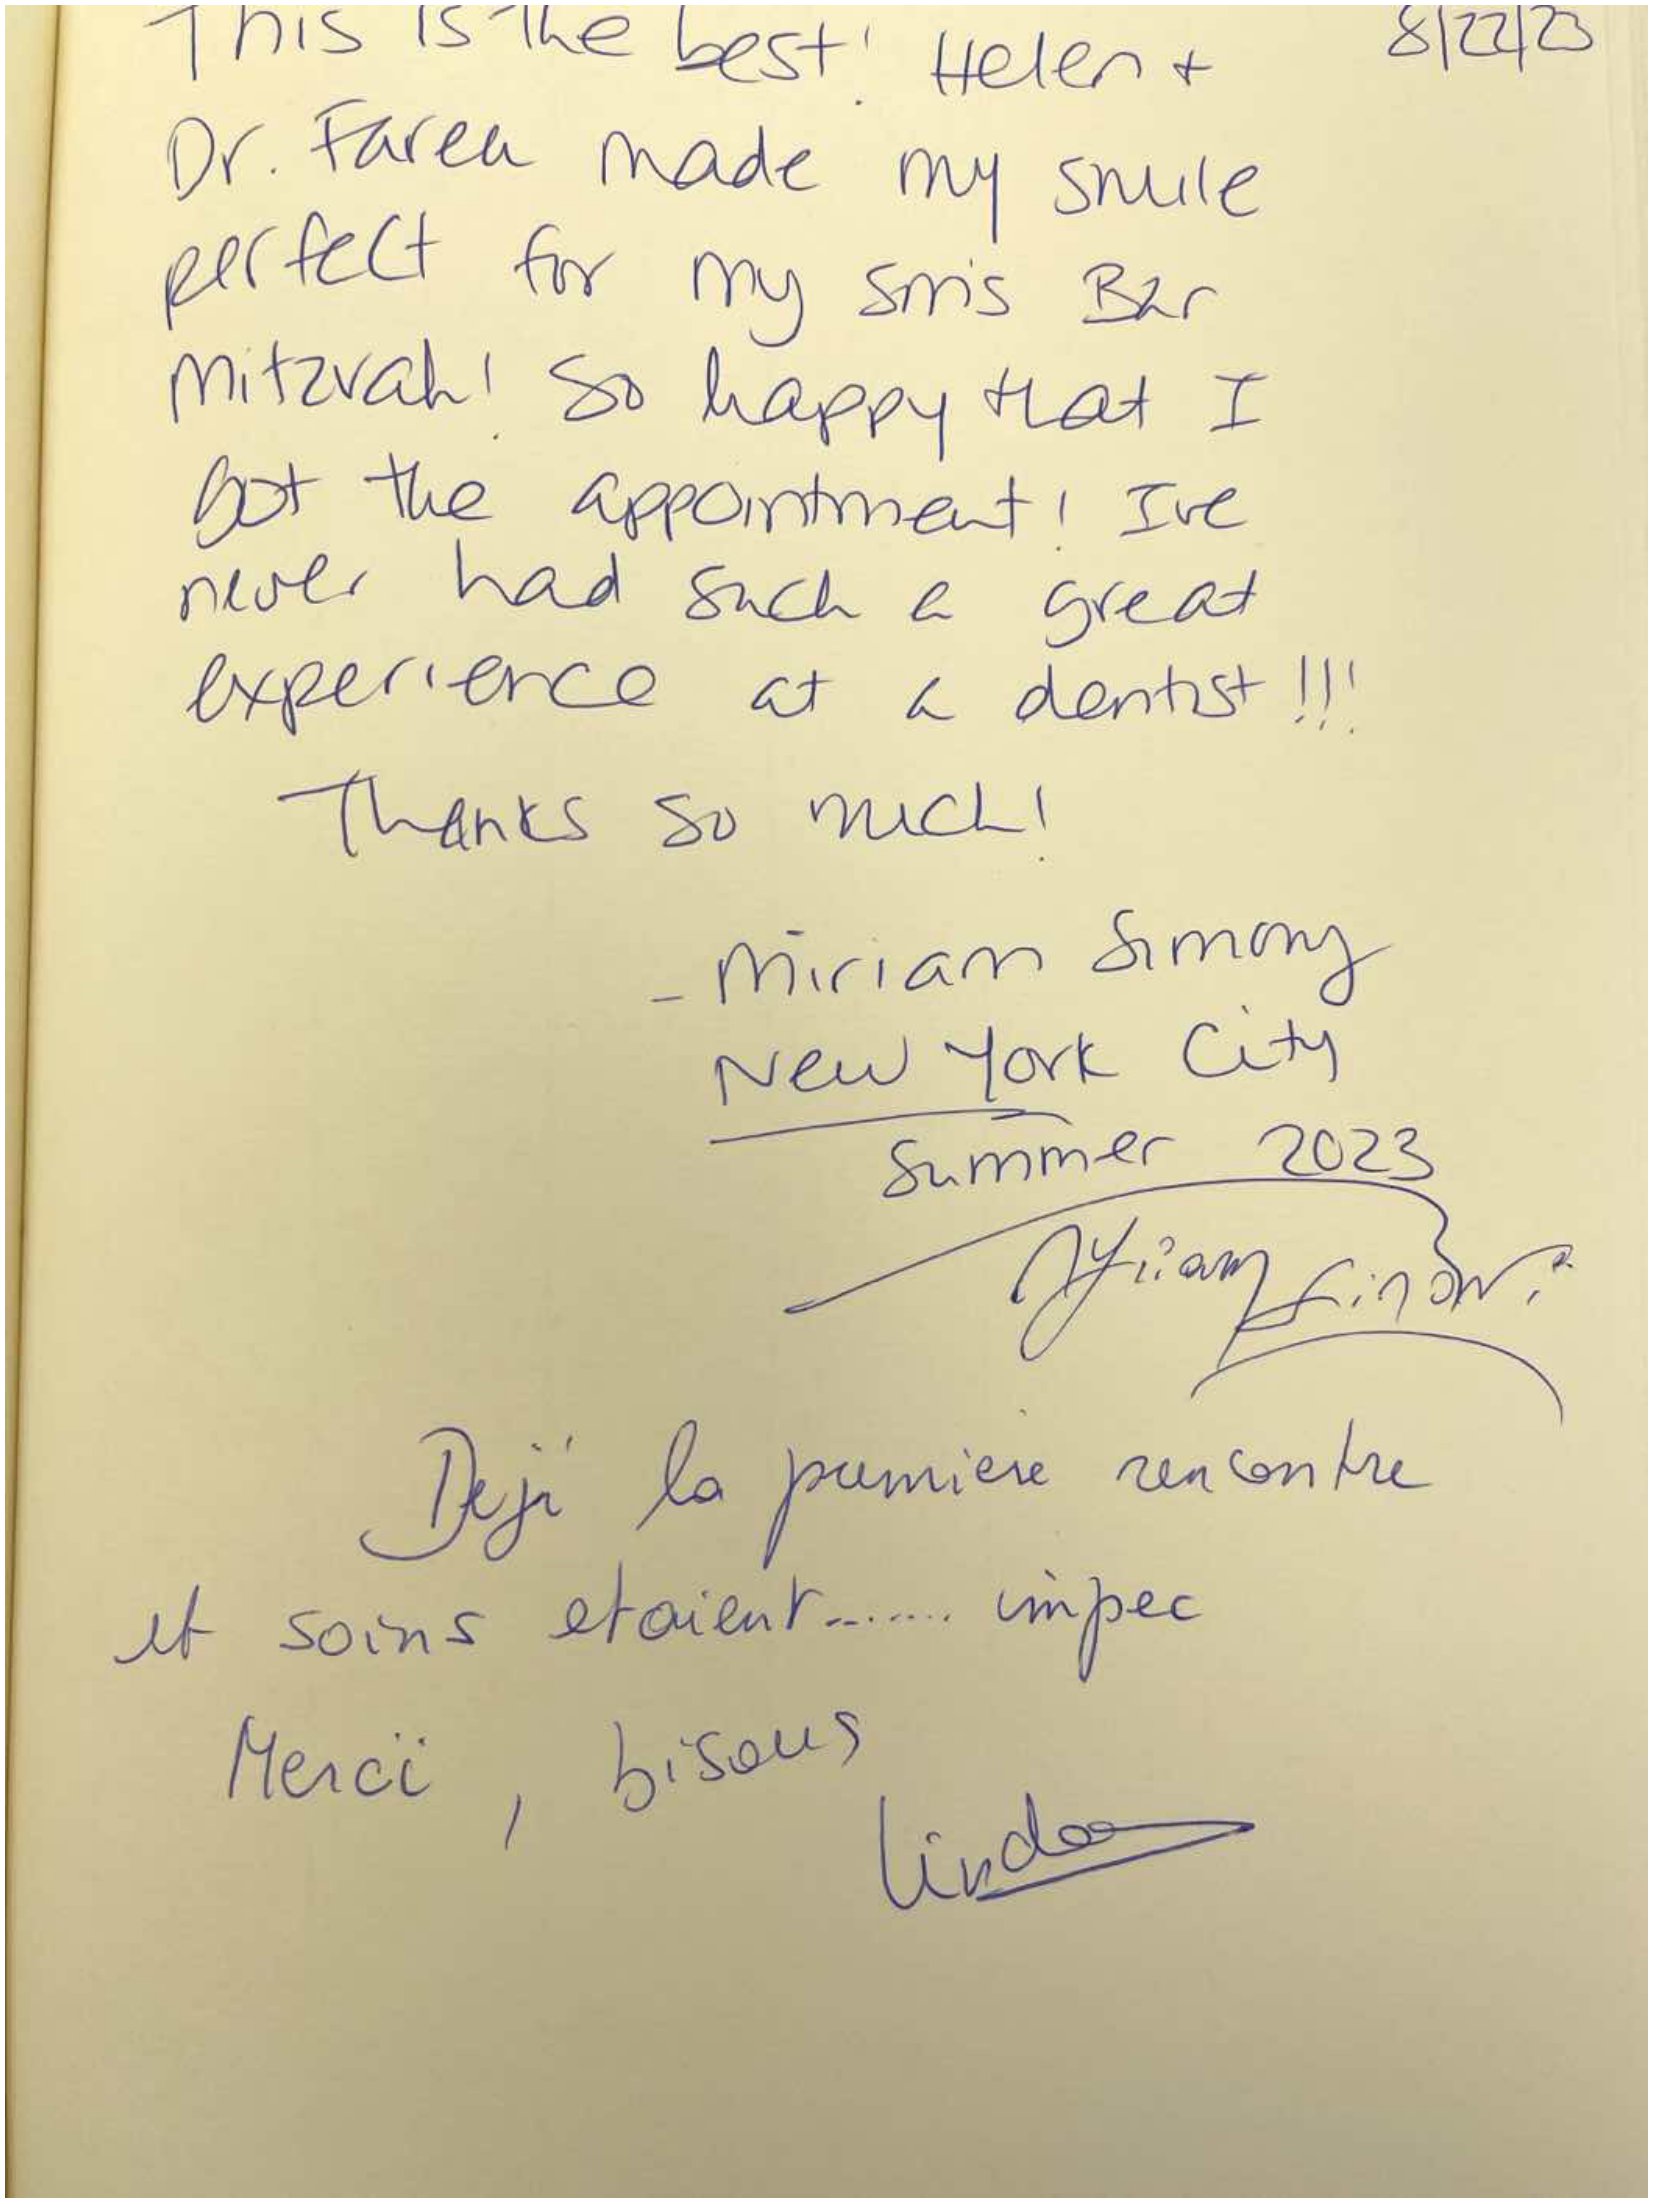 This is the best! Helen + 8/22/23
Dr. Farea made my smile
perfect for my son's Bar
Mitzvah! So happy that I
got the appointment! I've
never had such a great
experience at a dentist!!!
Thanks so much!
- Miriam Simony
New York City
Summer 2023
Déjà la premiere rencontre
et soins etaient....... impec
Merci, bisous
Linda